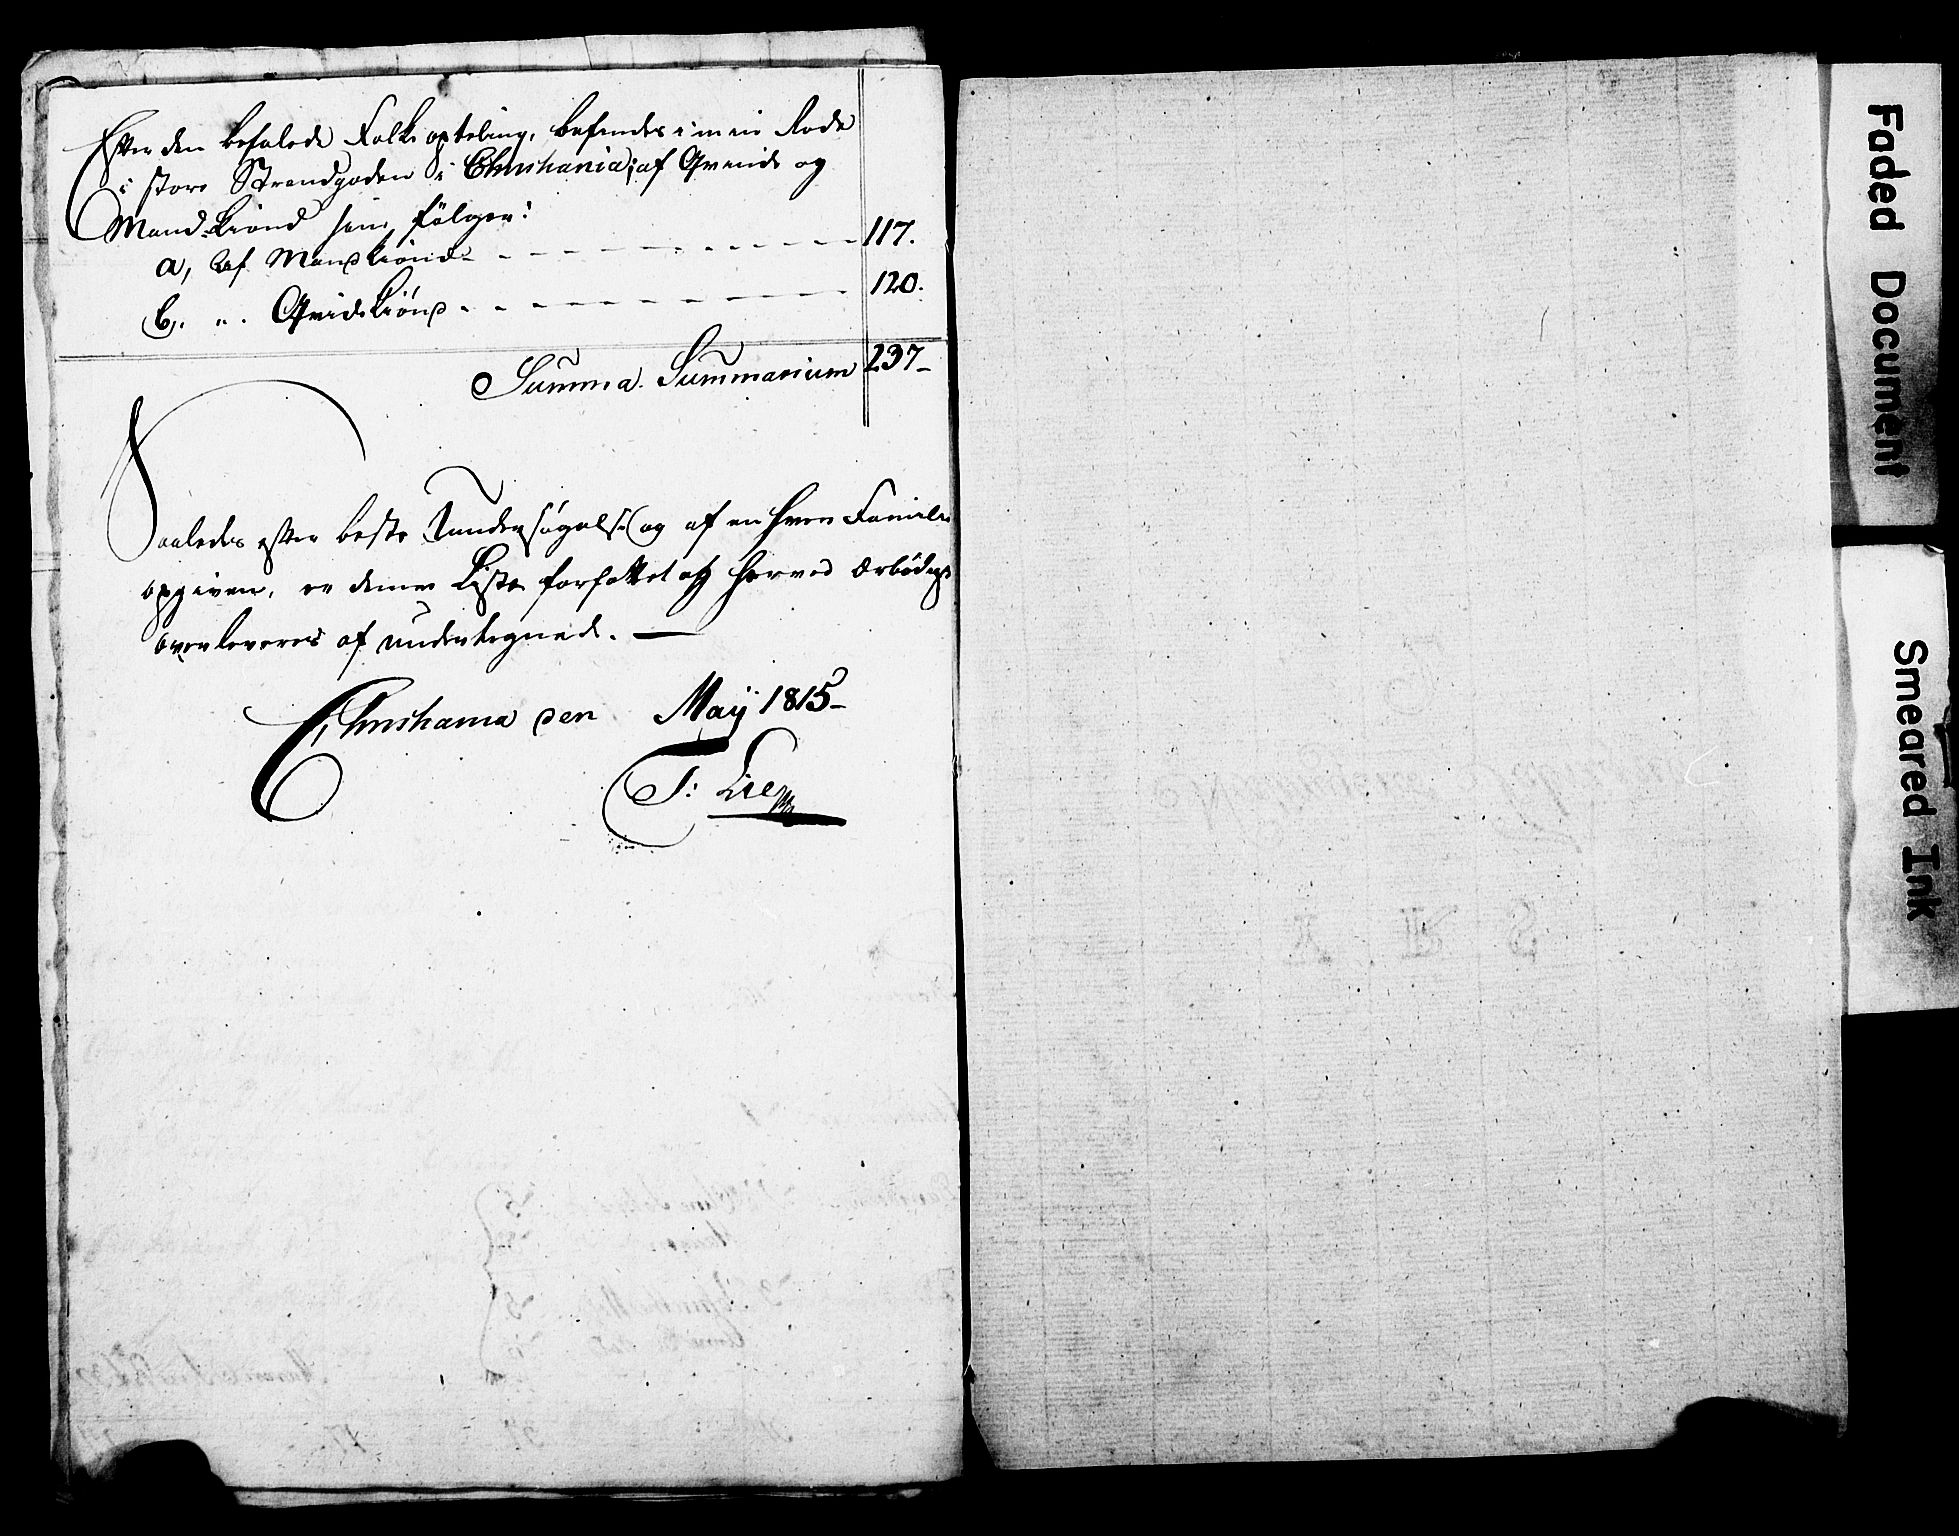 Efter den befalede Folke opteling, befindes i min Rode
i store Strandgaden i Christiania; af Qvinde og
Mand-kiönd som fölger:
a, af Mandkiönd - - - - - - - - 117.
b, ". Qvindekiönd - - - - - - - - 120.
Summa Summarium 237-
Saaledes efter beste Undersøgelse og af en hver Familie
opgiven, er denne Liste forfattet og herved ærbödigst
overleveres af undertegnede. —
Christiania den May 1815-
T: Lie
Faded Document
Smeared Ink